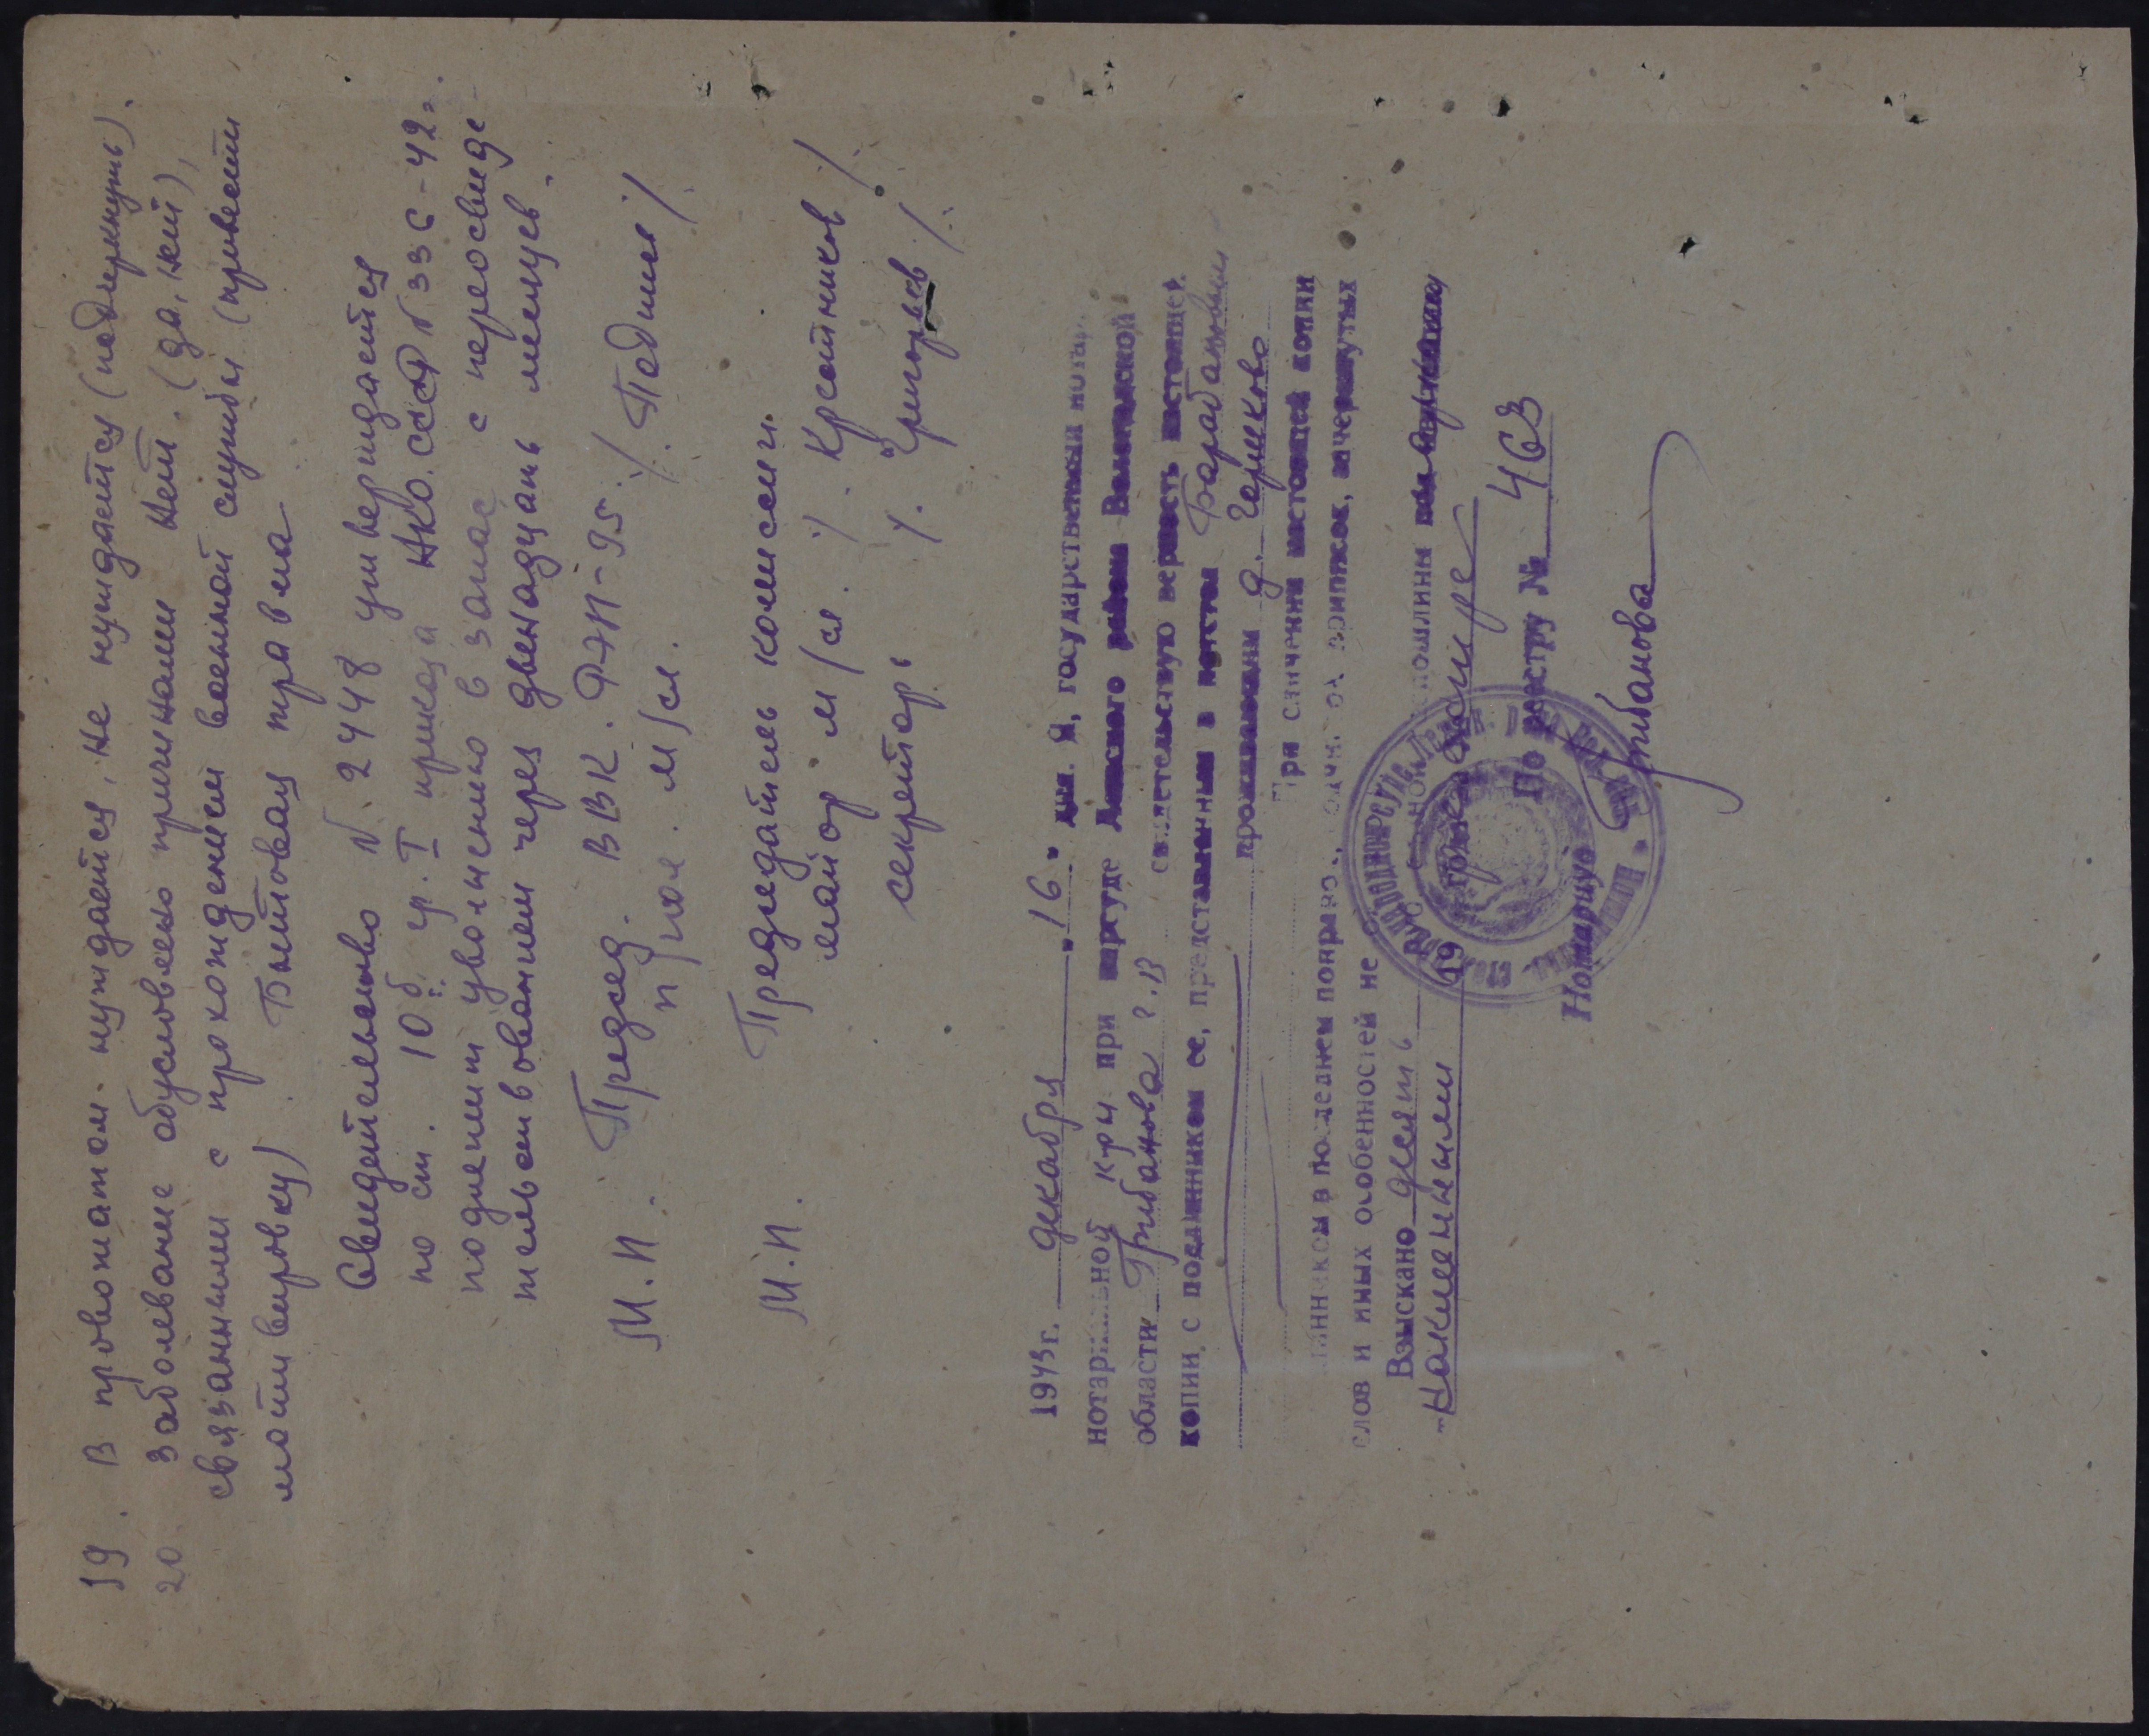 19. В провожатом нуждается, не нуждается (подчеркнуть).
20. Заболевание обусловлено причинами нет. (да, нет),
связанными с прохождением военной службы (привести
мотивировку). Бытовая травма
Свидетельство № 2448 утверждается
по ст. 10б гр. I приказа НКО.СССР № 336-42г.
подлежит увольнению в запас с переосвиде-
тельствованием через двенадцать месяцев.
М.П. Председ. ВВК. ФЭП-95. /. Тедиил /.
п/пол. м/сл.
М.П. Председатель комиссии.
майор м/сл. /. Крсотников /.
секретарь /. Григорьев /.
1943 г. декабря „16" дня. Я, государственный нота
нотариальной к-ры при нарсуде района Вологодской
области Грибанова Р.В свидетельствую верность настоящей
копии с подлинником ее, представленным в
проживающим д. Горшково
При сличении настоящей копии
в последнем поправок, приписок, зачеркнутых
слов и иных особенностей не
Взыскано десять пошлины
По реестру № 463
Нотариус Грибанова